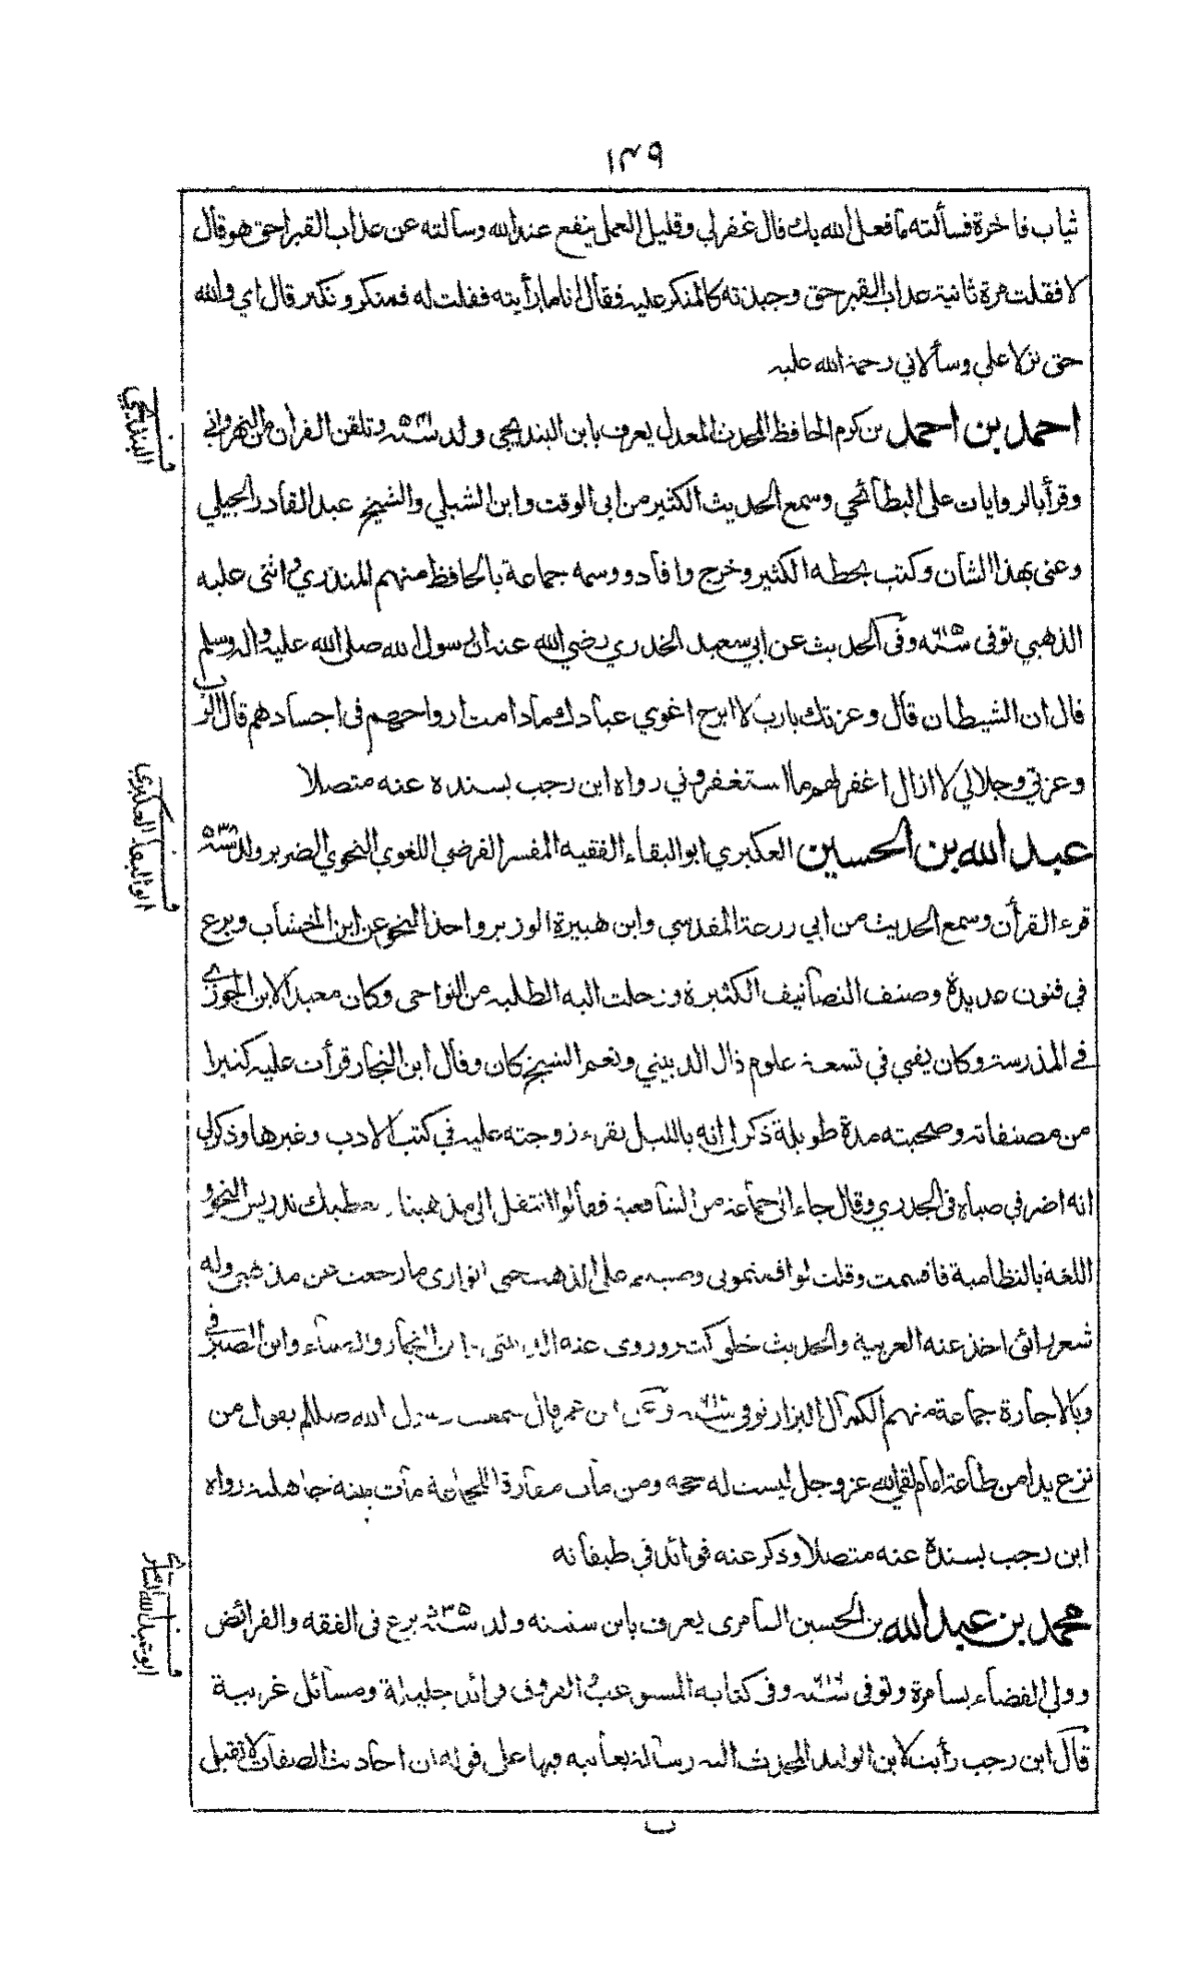 ١٣٩
ثياب فاخرة فسألته ما فعل الله بك فال غفر لي وقليل العمل ينفع عند الله وسالته عن عذاب القبر احق هو قال
لا فقلت مرة ثانية عذاب القبر حق وجبذته كالمنكر عليه فقال انا ما رأيته ففلت له فمنكر ونكير قال اي والله
حق نزلا علي وسألاني رحمة الله عليه
احمد بن احمد بن كرم الحافظ المحدث المعدل يعرف بابن البندنيجي ولد سنة وتلقن القران من النهرواني
البندنيجي
وقرأ بالروايات على البطائحي وسمع الحديث الكثير من ابي الوقت وابن الشبلي والشيخ عبد القادر الجيلي
وعنى بهذا الشان وكتب بخطه الكثير وخرج وافاد ووسمه جماعة بالحافظ منهم المنذري واثنى عليه
الذهبي توفى سنة ٦١٥ وفى الحديث عن ابي سعيد الخدري رضي الله عنه ان رسول الله صلى الله عليه واله وسلم
قال ان الشيطان قال وعزتك يا رب لا ابرح اغوي عبادك ما دامت ارواحهم فى اجسادهم قال الرب
وعزتي وجلالي لا ازال اغفر لهم ما استغفروني رواه ابن رجب بسنده عنه متصلا
عبد الله بن الحسين العكبري ابو البقاء الفقيه المفسر الفرضي اللغوي النحوي الضرير ولد سنة ٥٣٨
ابو البقاء العكبري
قرء القرأن وسمع الحديث من ابي زرعة المقدسي وابن هبيرة الوزير واخذ النحو عن ابن الخشاب وبرع
في فنون عديدة وصنف التصانيف الكثيرة ورحلت اليه الطلبه من النواحى وكان معيدا لابن الجوزي
في المدرسة وكان يفتي في تسعة علوم قال الدبيثي ونعم الشيخ كان وقال ابن النجار قرأت عليه كثيرا
من مصنفاته وصحبته مدة طويلة ذكر لي انه بالليل يقرء زوجته عليه في كتب الادب وغيرها وذكر لي
انه اضر في صباه فى الجدري وقال جاء الى جماعة من الشافعية فقالوا انتقل الى مذهبنا نعطيك تدريس النحو و
اللغة بالنظامية فاقسمت وقلت لو اقمتموني وصببتم علي الذهب حتى اتوارى ما رجعت عن مذهبي وله
شعر رائق اخذ عنه العربية والحديث خلق كثير وروى عنه الدبيثي وابن النجار والضياء وابن الصيرفي
وبالاجازة جماعة منهم الكمال البزار توفى سنة ٦١٦ وعن ابن عمر قال سمعت رسول الله صللم يقول من
نزع يدا من طاعة امام لقي الله عز وجل ليست له حجة ومن مات مفارق الجماعة مات ميتة جاهلية رواه
ابن رجب بسنده عنه متصلا وذكر عنه فوائد في طبقاته
محمد بن عبد الله بن الحسين السامرى يعرف بابن سنينه ولد سنة ٥٣٥ برع فى الفقه والفرائض
ابو عبد الله السامري
وولي القضاء بسامرة وتوفى سنة ٦١٦ وفى كتابه المستوعب المعروف فوائد جليلة ومسائل غريبة
قال ابن رجب رأيت لابن الوليد المحدث اليه رسالة يعاتبه فيها على قوله ان احاديث الصفات لا تقبل
ب